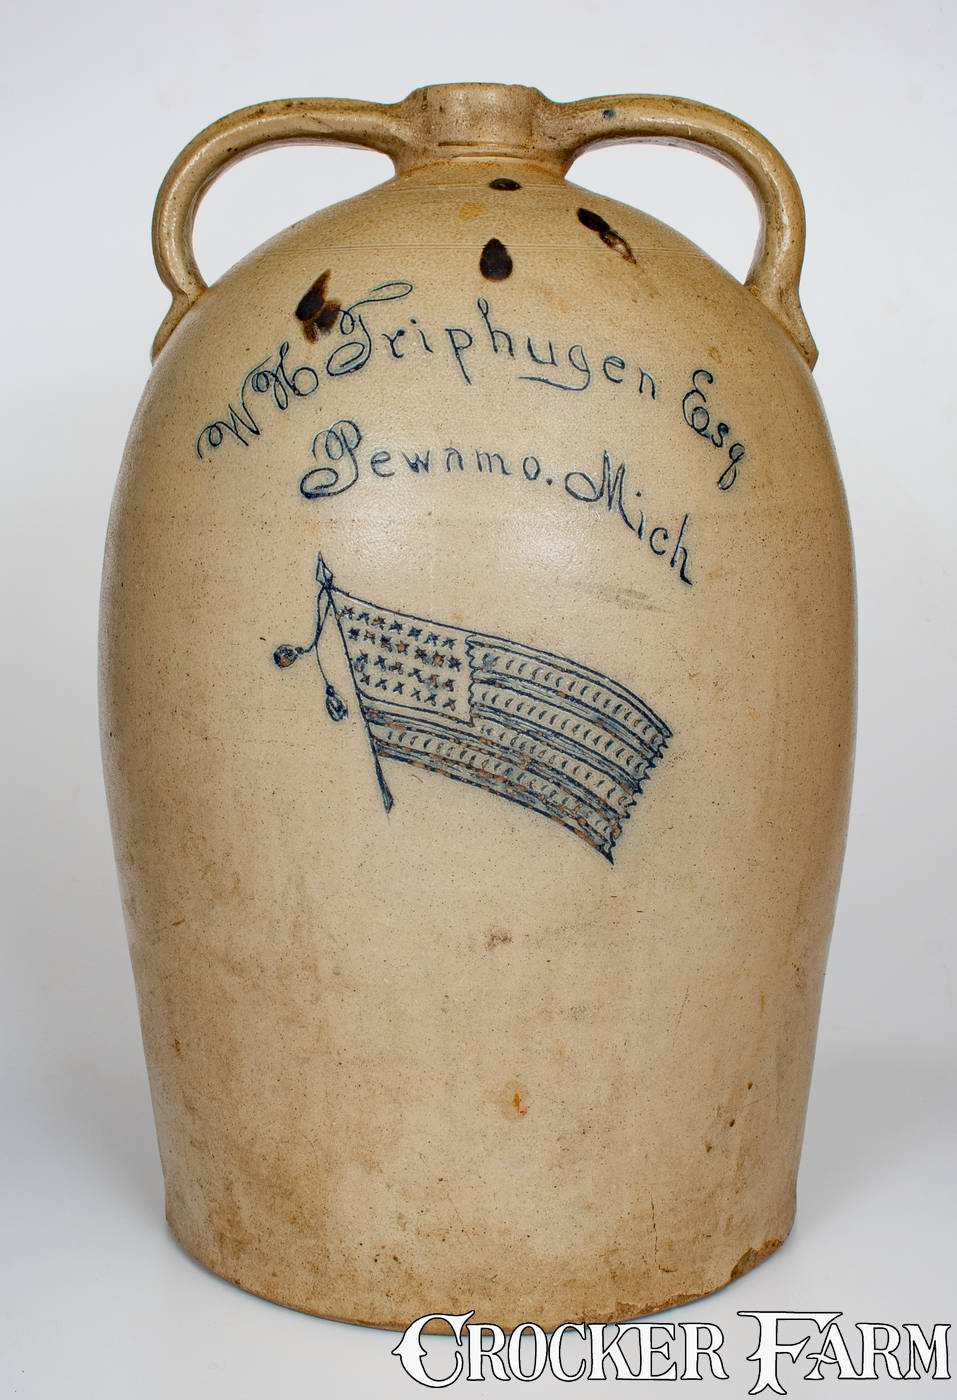 W H Triphugen Esq
Pewamo. Mich
CROCKER FARM